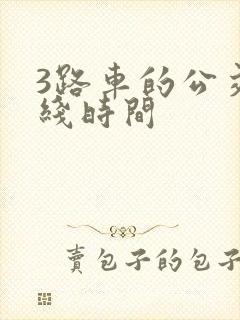 3路車的公交
綫時間
賣包子的包子